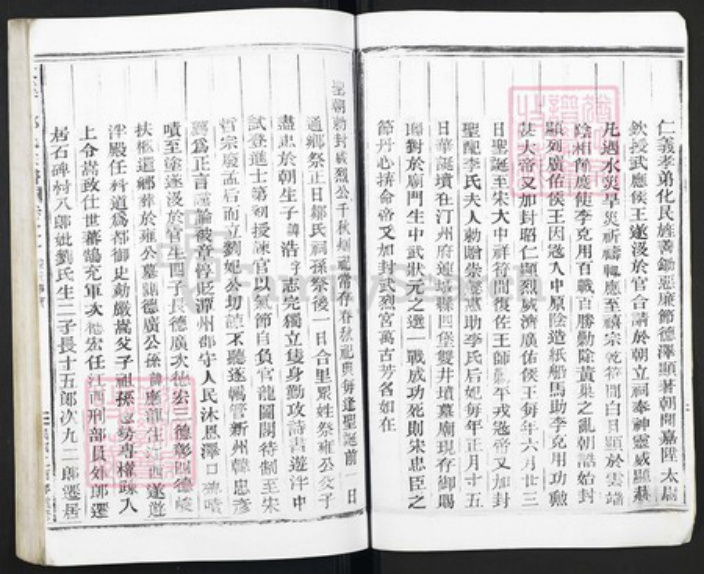 仁義孝弟化民旌善鋤惡廉節德澤顯著朝聞嘉陞太尉
欽授武應候王遂沒於官合請於朝立祠奉神靈威顯赫
凡遇水災旱災祈禱輒應至禧宗乾符間白日顯於雲端
陰相節度使李克用百戰百勝勦除黃巢之亂朝誥始封
顯列廣佑侯王因逖入中原陰造紙船馬助李克用功勲
甚大帝又加封昭仁顯烈威濟廣佑侯王每年六月廿三
日聖誕至宋大中祥符間復佐王師帝又加封
聖配李氏夫人勅贈崇惠助李氏后妃每年正月十五
日華誕墳在汀州府連城縣四堡雙井墳墓廟現存御賜
聯對於廟門生中武狀元之選一戰成功死則宋忠臣之
節丹心拚命帝又加封武烈宮萬古芳名如在
聖朝勅封威烈公千秋烟祀常存春秋祀典每逢聖誕前一日
通鄉祭正日鄒氏祠孫祭後一日合里眾姓祭雍公公于
盡忠於朝生子諱浩字志完獨立隻身勤攻詩書遊泮中
試登進士第初授諫官以氣節自負官龍圖閣待制至宋
哲宗廢孟后而立劉妃公切諫不聽逐羈管新州韓忠彥
薦為正言讜論被章惇貶潭州郡守人民沐恩澤口碑嘖
嘖至塗遂沒於官生四子長德廣次德宏三德彰四德崚
扶柩還鄉葬於雍公墓
泮殿任科道為都御史劾嚴嵩父子祖孫恃勢專權疎入
上令嵩致仕世蕃鴞充軍次德宏任江西刑部員外郎遷
居石碑村八郎妣劉氏生二子長十五郎次九二郎遷居